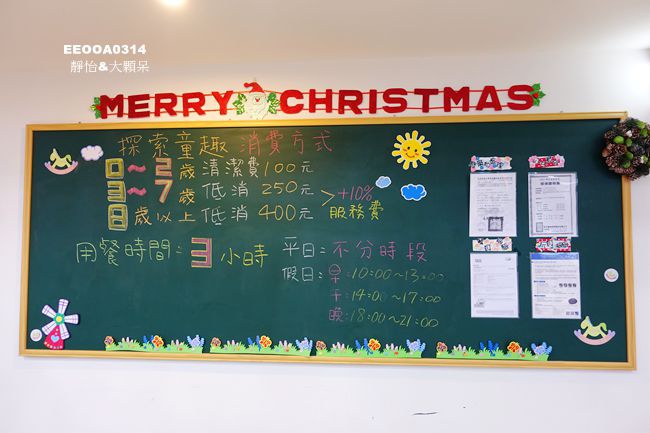 EEOOA0314
靜怡&大顆呆
MERRY CHRISTMAS
探索童趣 消費方式
0~2歲清潔費100元
3~7歲 低消 250元
8歲以上低消 400元
>+10%
服務費
用餐時間:3小時
平日:不分時段
假日:早:10:00~13:00
午:14:00~17:00
晚:18:00~21:00